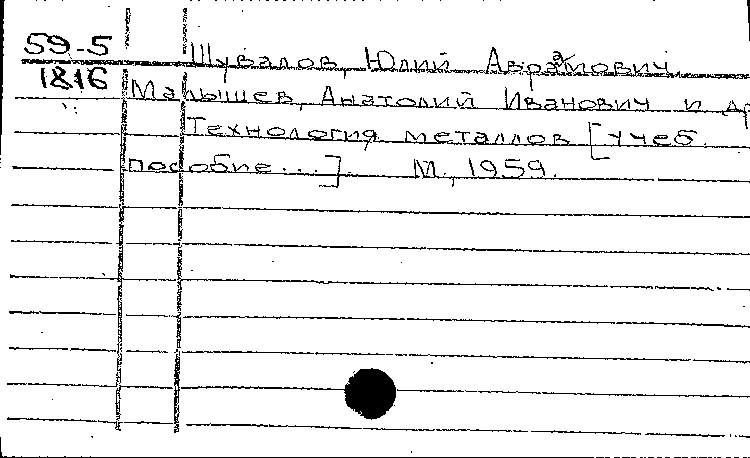 59-5
1816
Шувалов, Юлий Абрамович,
Малышев, Анатолий Иванович и др
Технология металлов [учеб.
пособие...]. М., 1959.